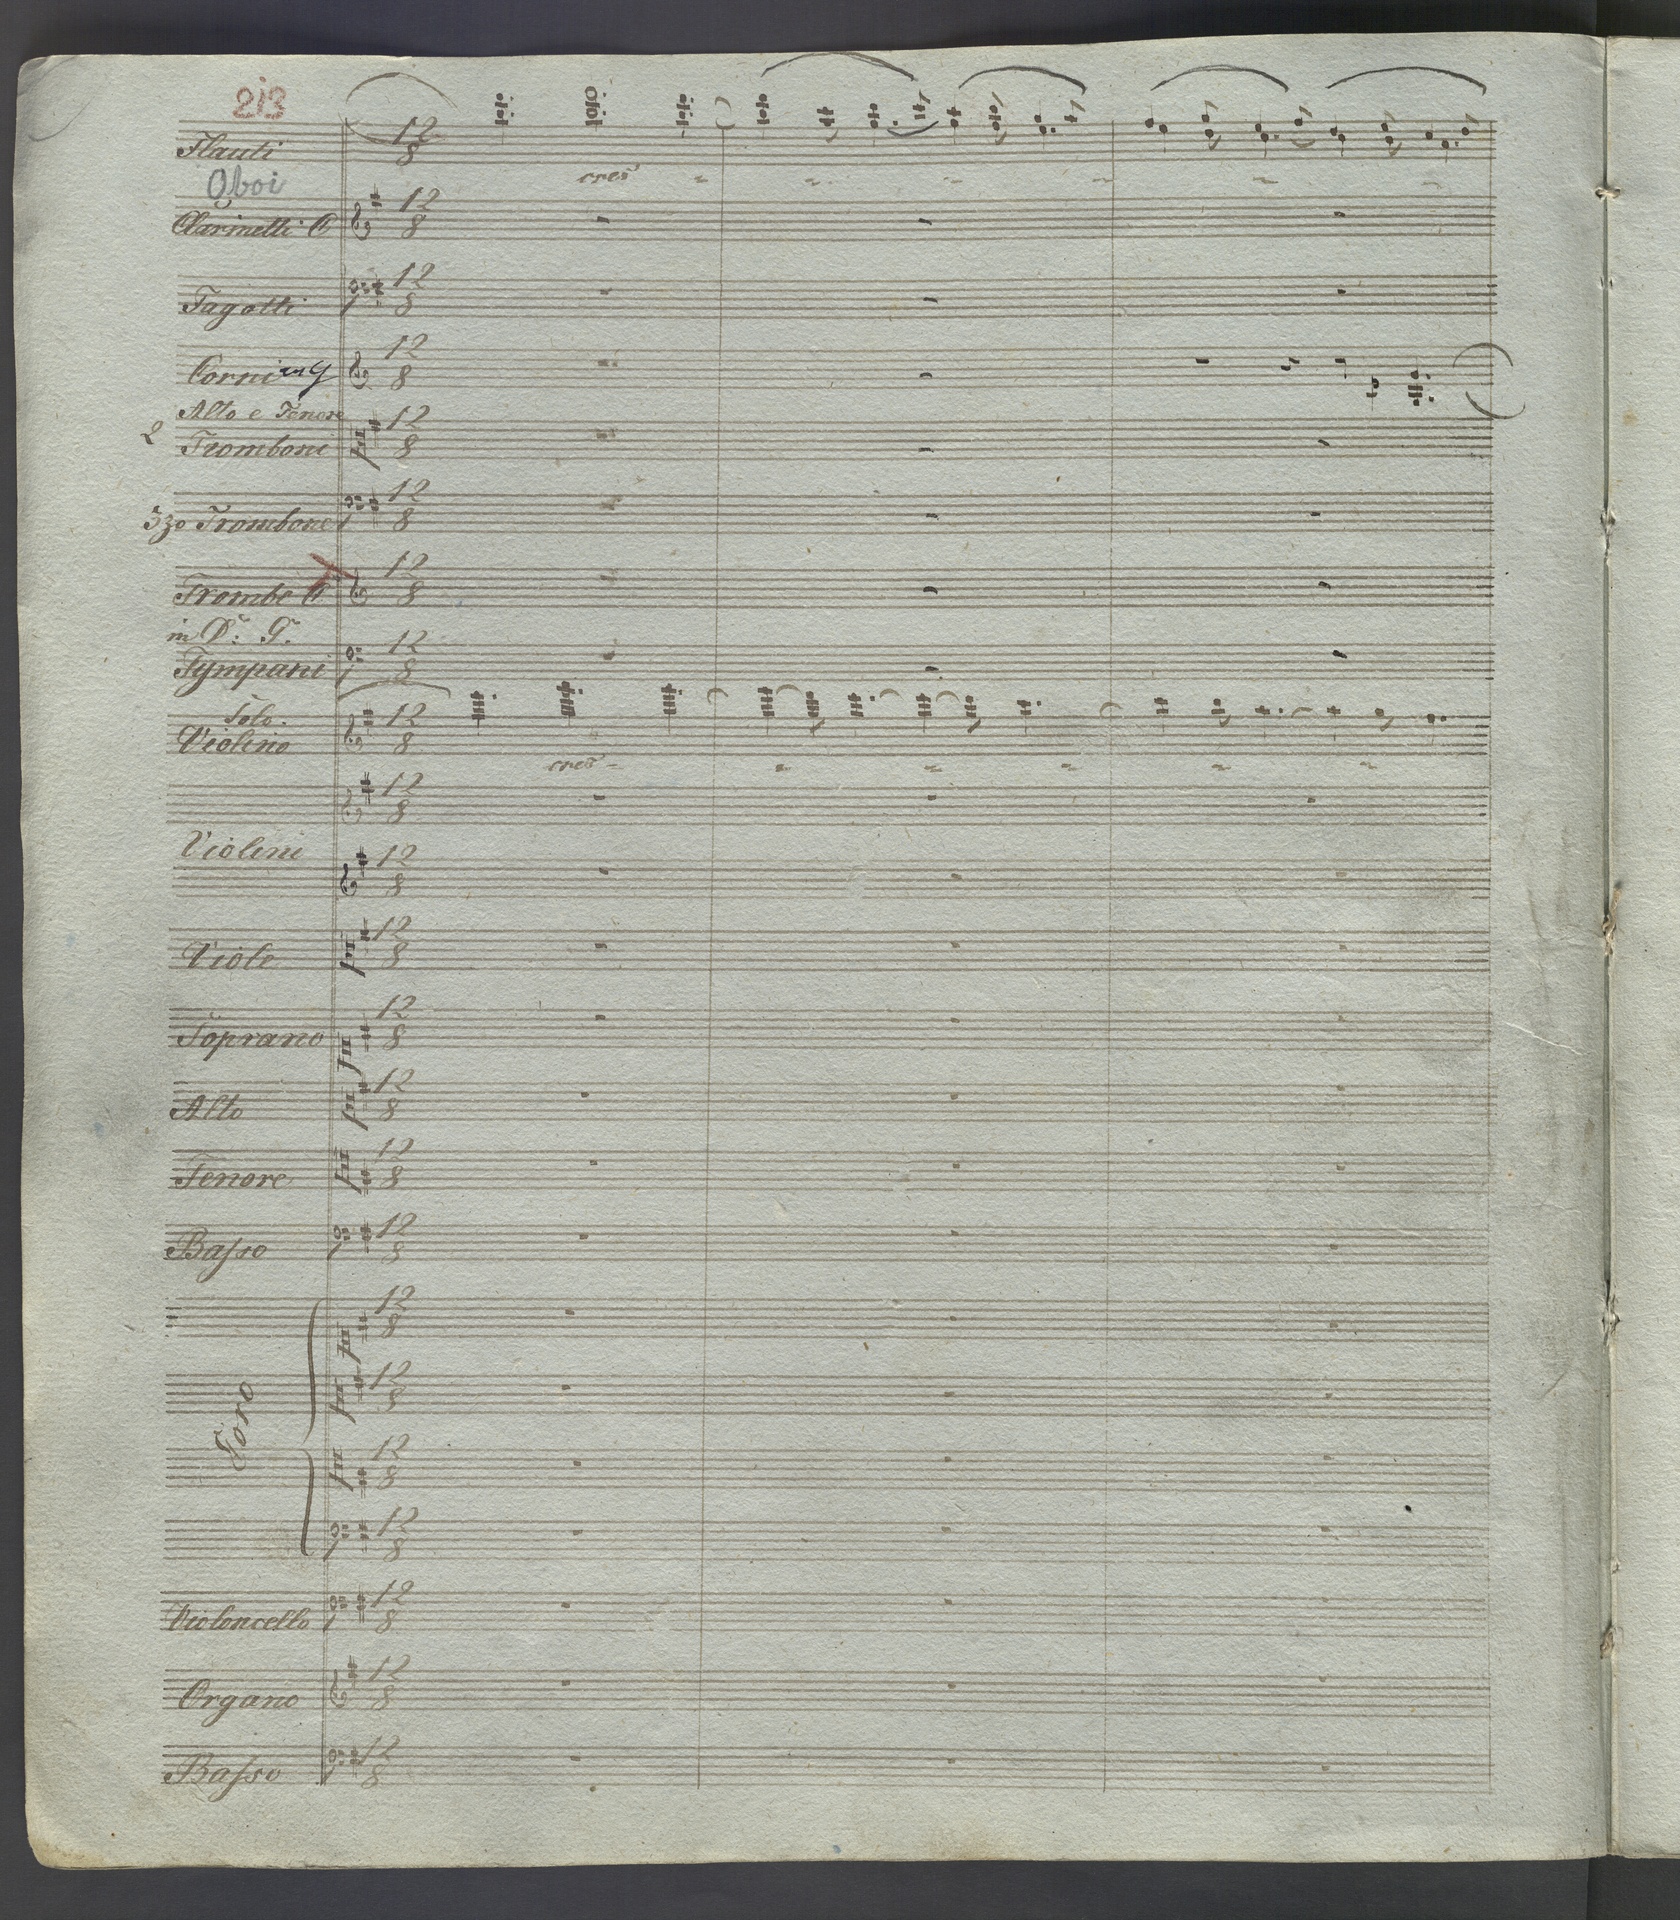 213
Flauti 12 8
Oboi
cres
Clarinetti C 12 8
Fagotti 12 8
Corni in G 12 8
Alto e Tenore
2 Tromboni 12 8
3zo Trombone 12 8
Trombe C 12 8
in D: G.
Tympani 12 8
Solo.
Violino 12 8
cres
12 8
Violini
12 8
Viole 12 8
Soprano 12 8
Alto 12 8
Tenore 12 8
Basso 12 8
12 8
12 8
Coro
12 8
12 8
Violoncello 12 8
Organo 12 8
Basso 12 8